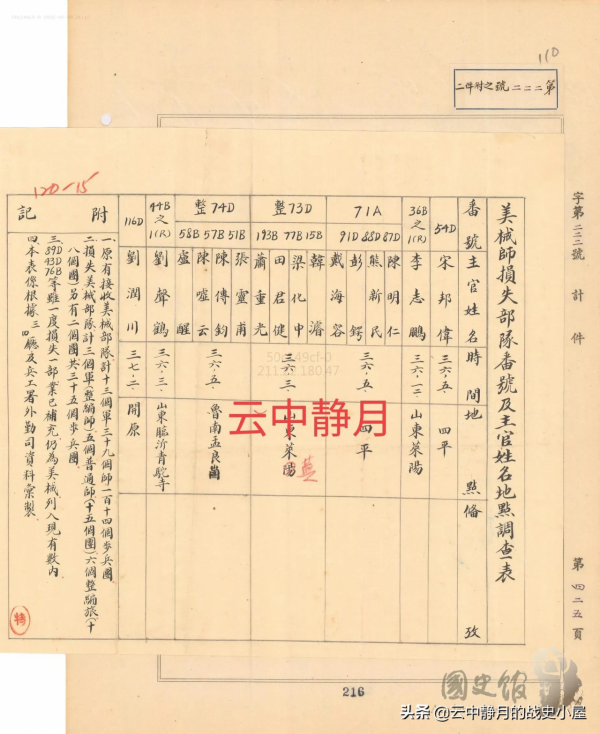 110
第二二二號之附件二
字第二二二號計件
第四二五頁
美械師損失部隊番號及主官姓名地點調查表
番號 主官姓名 時間 地點 備攷
54D 宋邦偉 三六,五、 四平
36B之1(R) 李志鵬 三六,一二、 山東萊陽
71A
87D 88D 91D
陳明仁
熊新民
彭鍔
戴海容
三六,五、 四平
整73D
15B 77B 193B
韓濬
梁化中
田君健
蕭重光
三六,三、 山東萊陽
蕪
整74D
51B 57B 58B
張靈甫
陳傳鈞
陳噓云
盧醒
三六,五、 魯南孟良崮
44B之1(R) 劉聲鶴 三六,三、 山東臨沂青駝寺
116D 劉潤川 三七,二、 開原
附記
一、原有接收美械部隊計十三個軍三十九個師一百十四個步兵團
二、損失美械部隊計三個軍(整編師)五個普通師(十五個團)六個整編旅(十
八個團)另有二個團共三十五個步兵團
三、39D 43D 76B等雖一度損失一部業已補充仍為美械列入現有數內
四、本表係根據三、四廳及兵工署外勤司資料彙製
120-15
特
云中静月
216
國史館
头条 @云中静月的战史小屋